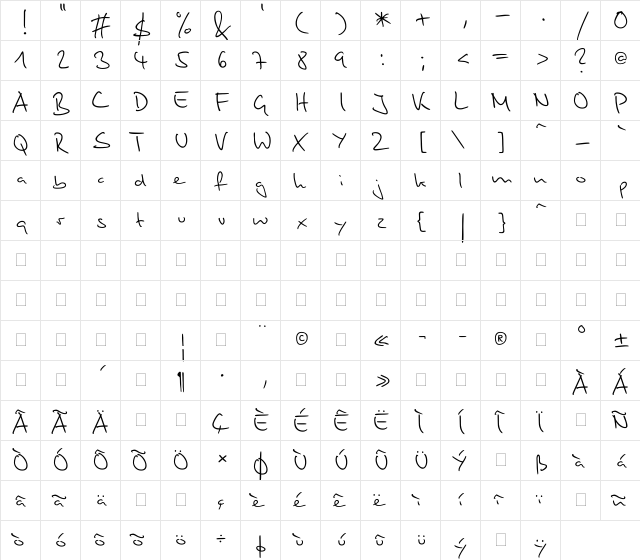 ! " # $ % & ' ( ) * + , − . / 0
1 2 3 4 5 6 7 8 9 : ; < = > ? @
A B C D E F G H I J K L M N O P
Q R S T U V W X Y Z [ \ ] ^ _ `
a b c d e f g h i j k l m n o p
q r s t u v w x y z { | } ^
¦ ¨ © « ¬ - ® ° ±
´ ¶ · ¸ » À Á
 à Ä Ç È É Ê Ë Ì Í Î Ï Ñ
Ò Ó Ô Õ Ö × Ø Ù Ú Û Ü Ý ß à á
â ã ä ç è é ê ë ì í î ï ñ
ò ó ô õ ö ÷ ø ù ú û ü ý ÿ